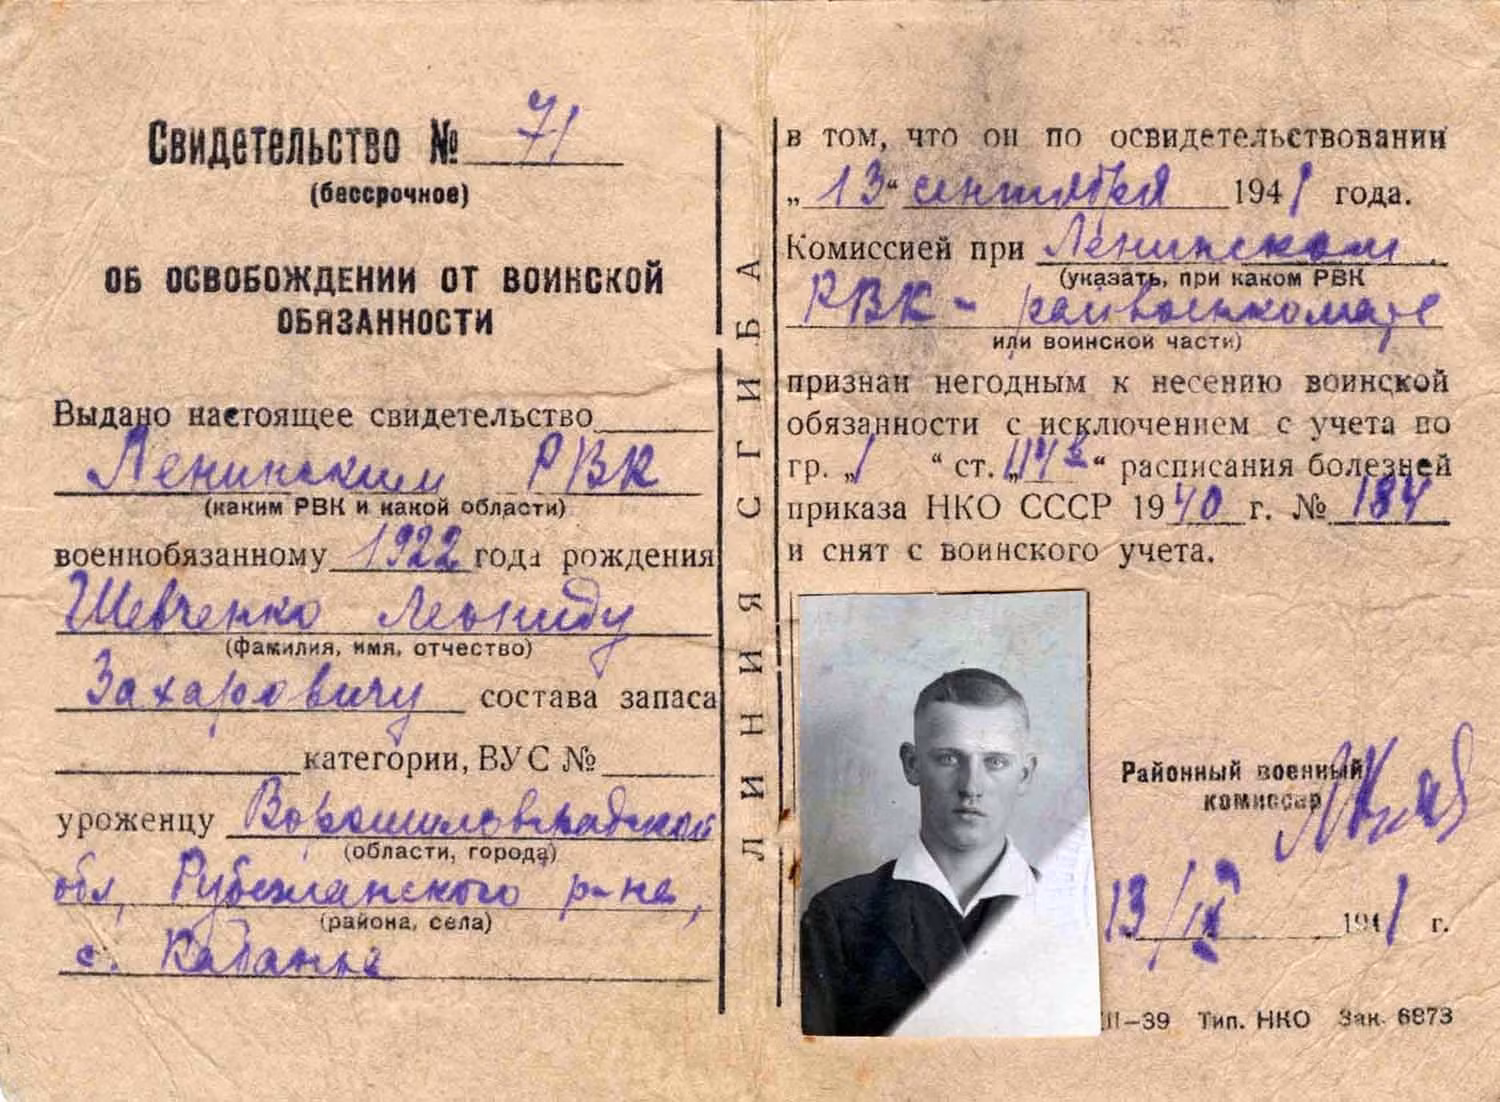 Свидетельство № 71
(бессрочное)
ОБ ОСВОБОЖДЕНИИ ОТ ВОИНСКОЙ
ОБЯЗАННОСТИ
Выдано настоящее свидетельство
Ленинским РВК
(каким РВК и какой области)
военнобязанному 1922 года рождения
Шевченко Леониду
(фамилия, имя, отчество)
Захаровичу состава запаса
категории, ВУС №
уроженцу Ворошиловградской
(области, города)
обл, Рубежанского р-на,
(района, села)
с. Кабанье
ЛИНИЯ СГИБА
в том, что он по освидетельствовании
„13“ сентября 1941 года.
Комиссией при Ленинском
(указать, при каком РВК
РВК - райвоенкомате
или воинской части)
признан негодным к несению воинской
обязанности с исключением с учета по
гр. „1“ ст. „“ расписания болезней
приказа НКО СССР 1940 г. № 184
и снят с воинского учета.
Районный военный
комиссар
13/IX 1941 г.
III—39 Тип. НКО Зак. 6873